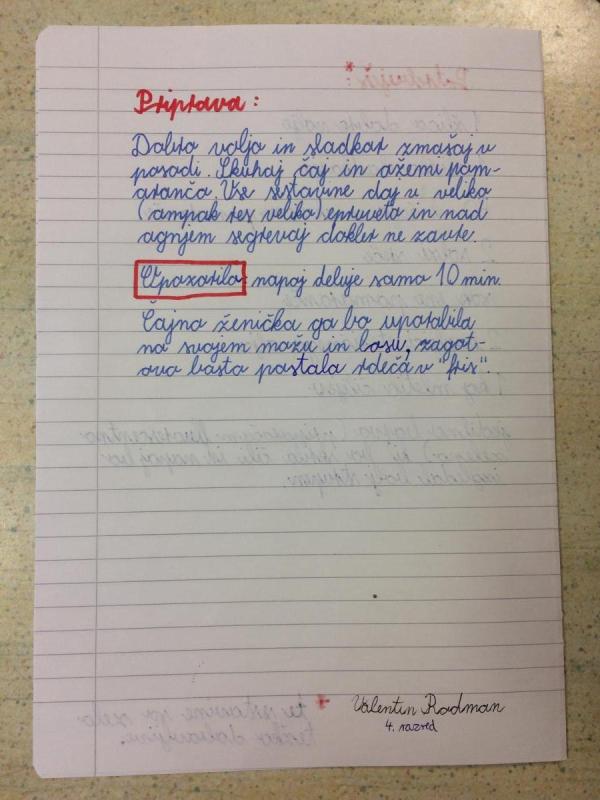 Priprava:
Dobro voljo in sladkor zmešaj v
posodi. Skuhaj čaj in ožemi pom-
arančo. Vse sestavine daj v veliko
(ampak res veliko) epruveto in nad
ognjem segrevaj dokler ne zavre.
Opozorilo: napoj deluje samo 10 min.
Čajna ženička ga bo uporabila
na svojem možu in losu, zagot-
ovo bosta postala rdeča v "fris".
Valentin Radman
4. razred